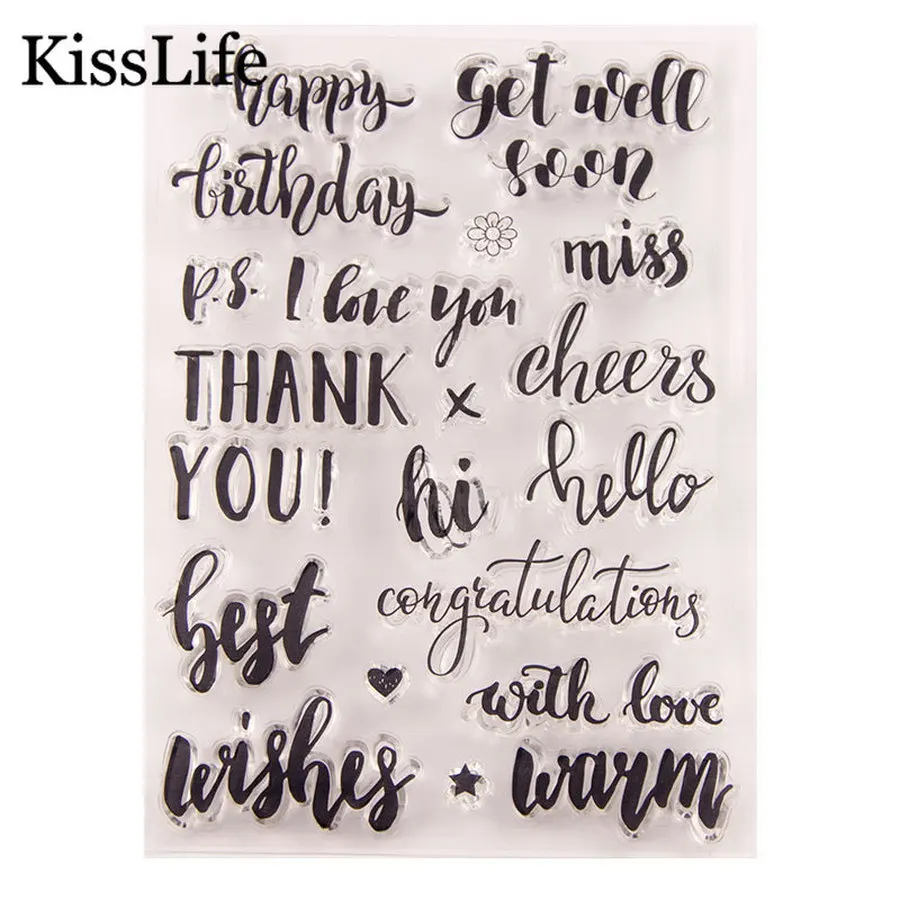 KissLife
happy
birthday
get well
soon
miss
p.s. I love you
THANK
YOU!
x
cheers
hi
hello
best
wishes
congratulations
with love
warm